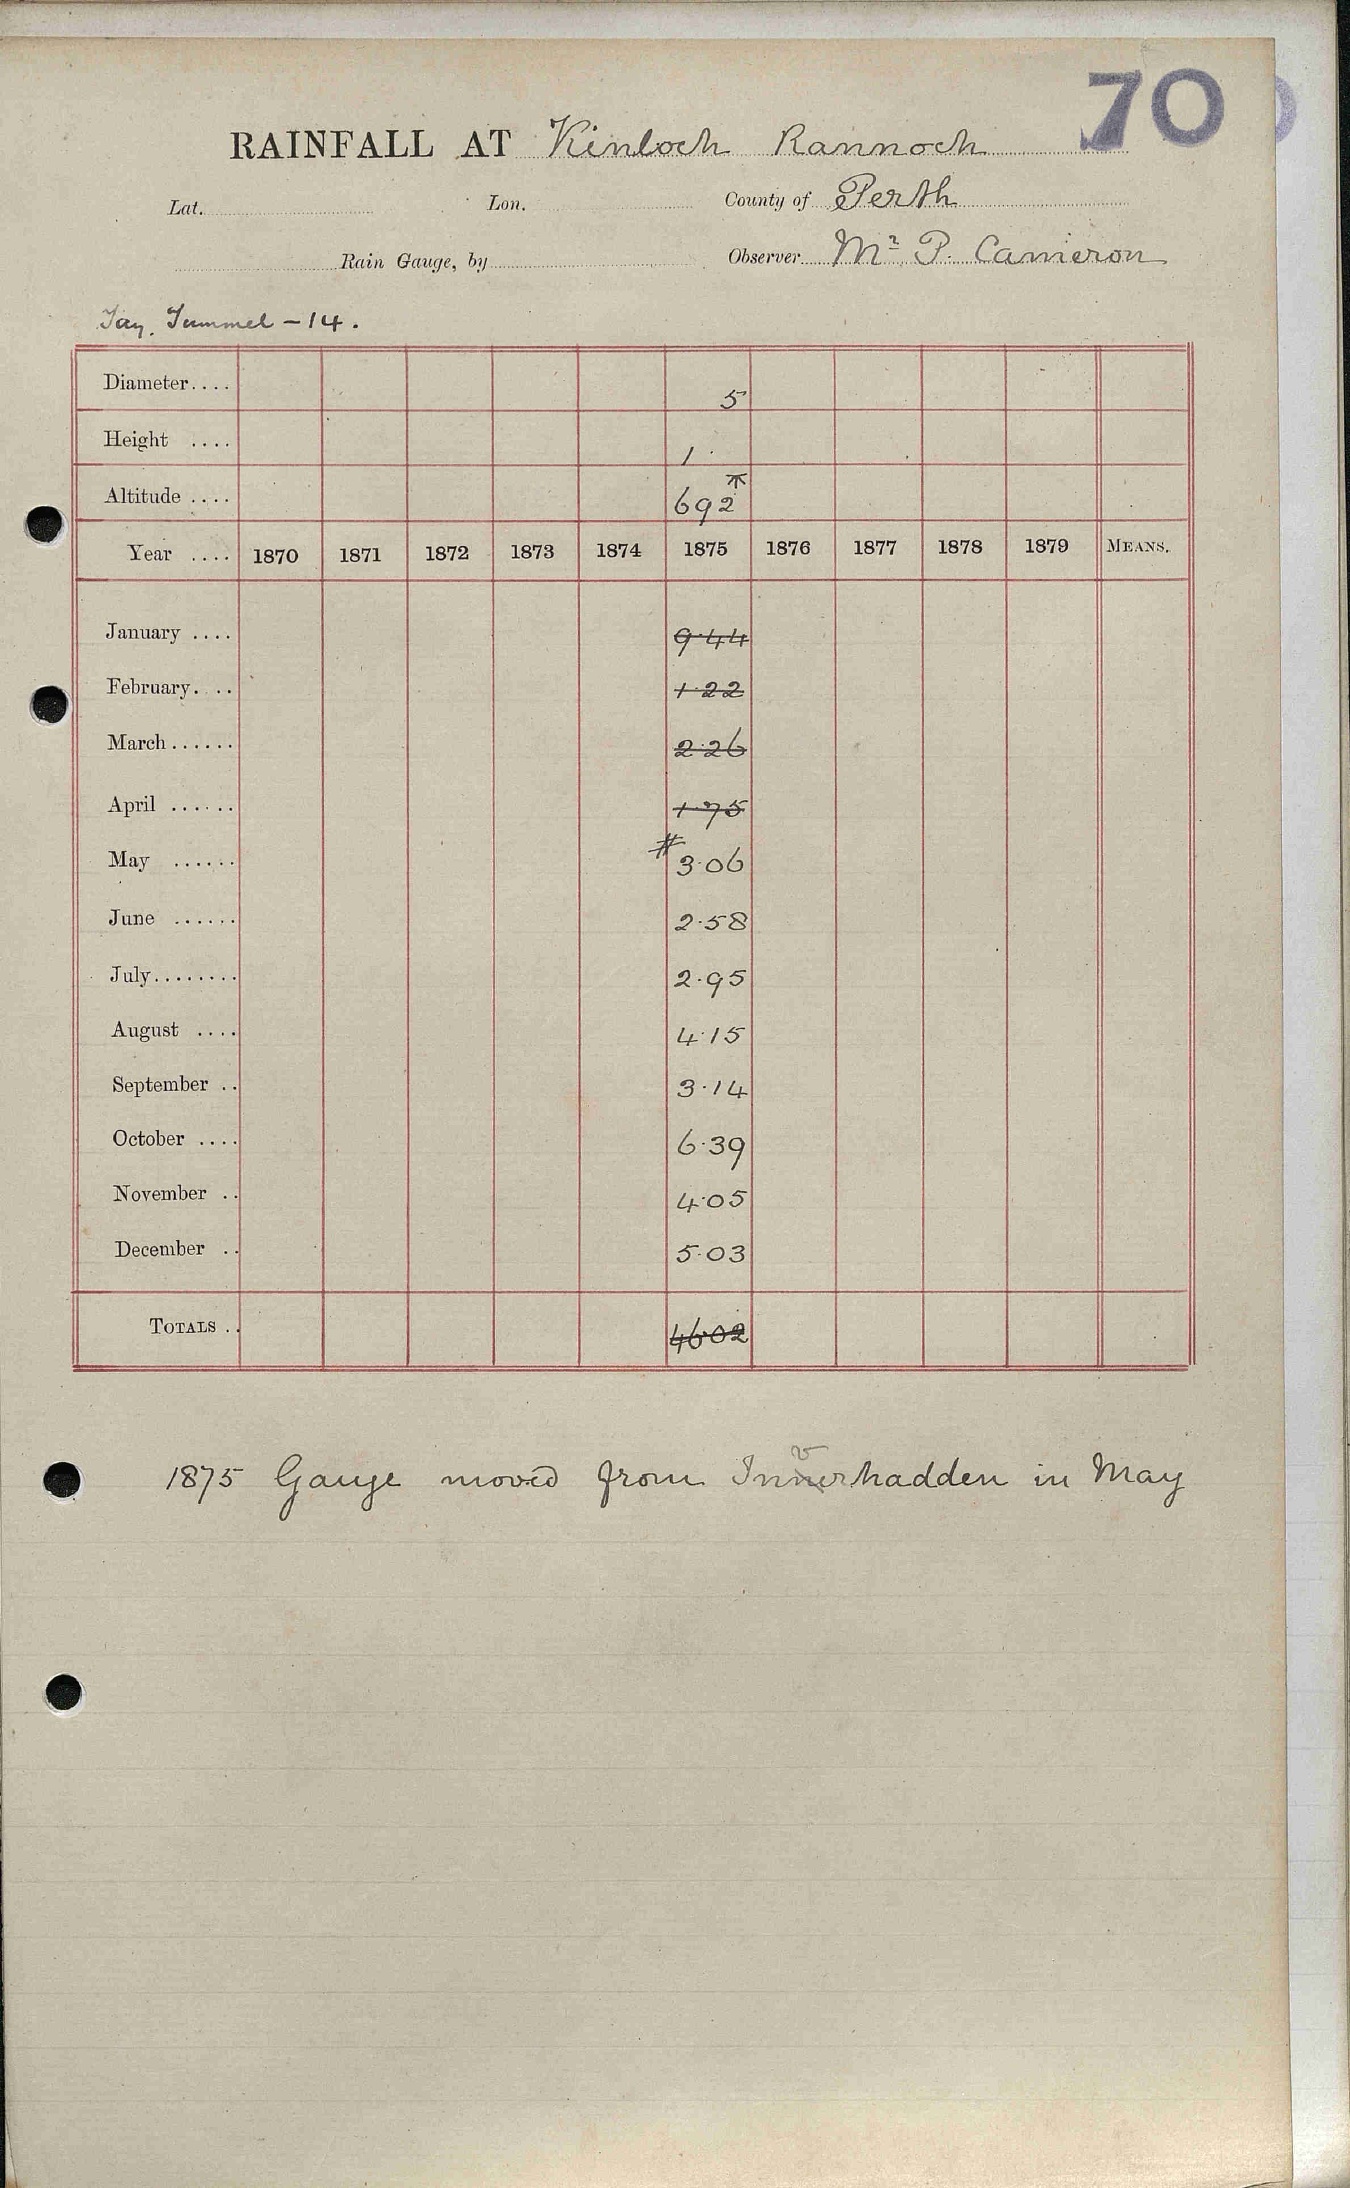 70
RAINFALL AT Kinloch Rannoch
Lat. Lon. County of Perth
Rain Gauge, by Observer Mr P. Cameron
Tay. Tummel - 14.
Diameter.... 5
Height .... 1
Altitude .... 692
Year .... 1870 1871 1872 1873 1874 1875 1876 1877 1878 1879 MEANS.
January .... 9.44
February. .. 1.22
March...... 2.26
April ...... 1.75
May ...... # 3.06
June ...... 2.58
July........ 2.95
August .... 4.15
September .. 3.14
October .... 6.39
November .. 4.05
December .. 5.03
TOTALS .. 46.02
1875 Gauge moved from Innverhadden in May